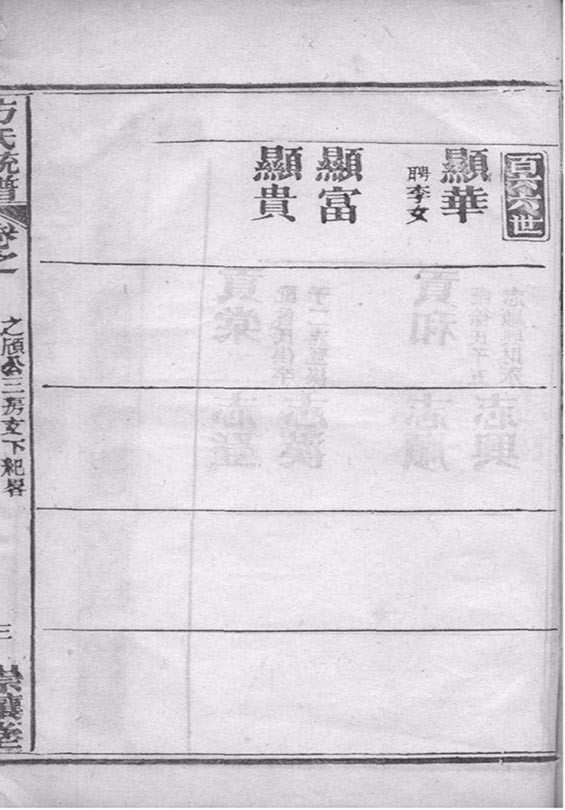 百六六世
顯華
聘李女
顯富
顯貴
方氏統譜
卷之
之頎公三房文下紀畧
三